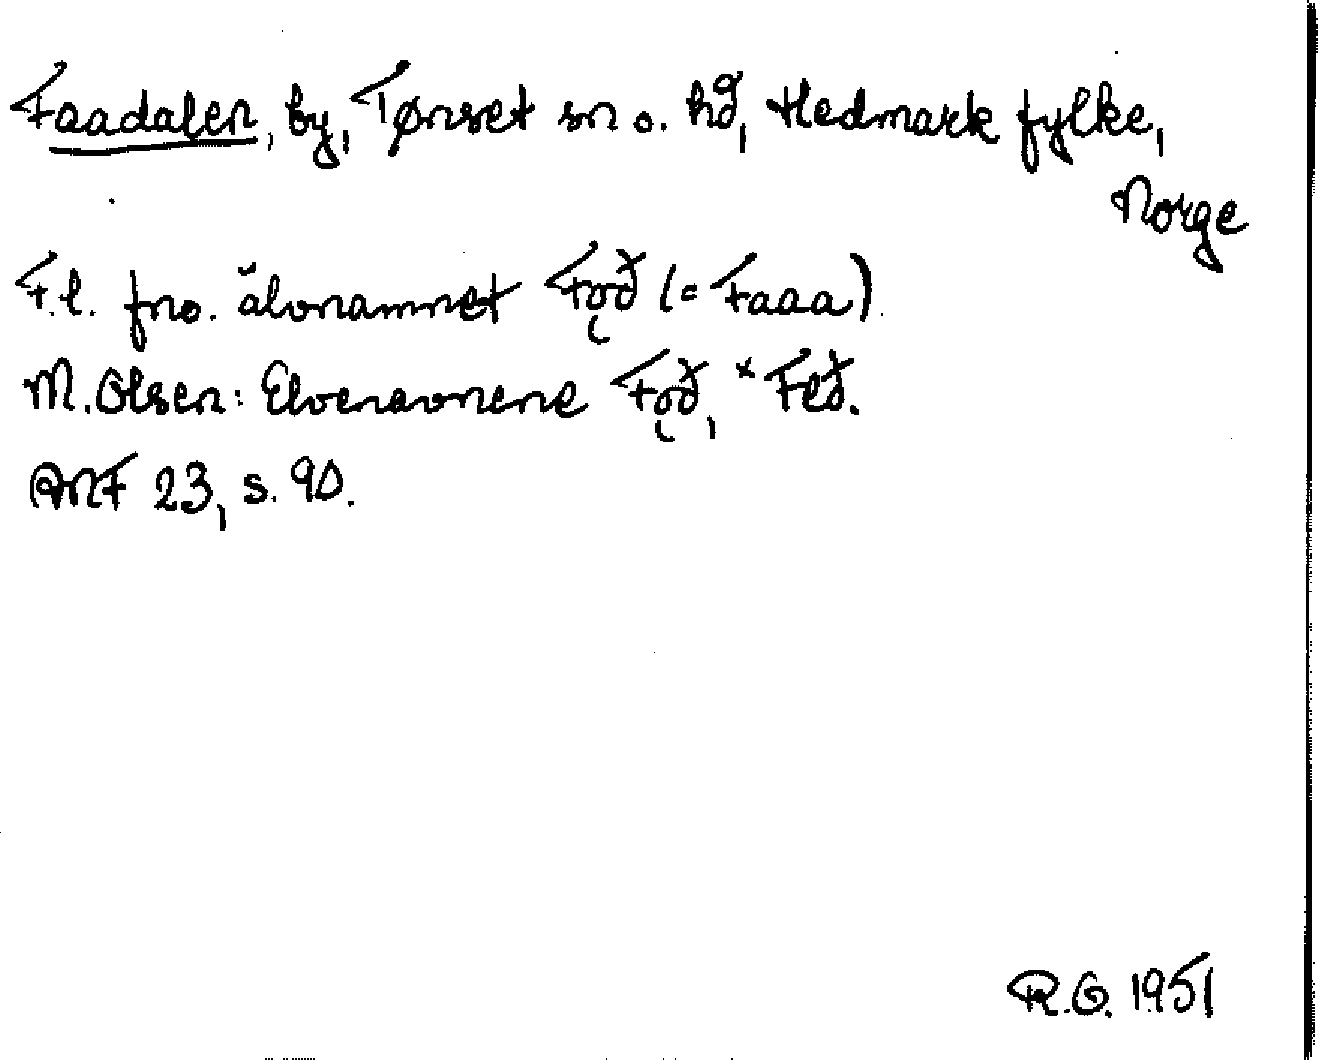 Faadalen, by, Tønset sn o. hd, Hedmark fylke,
Norge
F.l. fno. älvnamnet Fǫð (= Faaa).
M. Olsen: Elvenavnene Fǫð, *Feð.
ANF 23, s. 90.
R.G. 1951